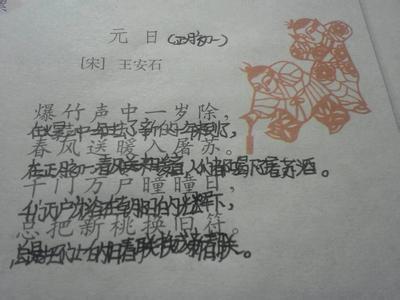 元日(正月初一)
[宋] 王安石
爆竹声中一岁除，
在爆竹声中旧去了新的一年到了，
春风送暖入屠苏。
在正月初一春风送来温暖人们都喝下屠苏酒。
千门万户曈曈日，
千家万户沐浴在朝阳的光辉下，
总把新桃换旧符。
总是把旧春联换成新春联。